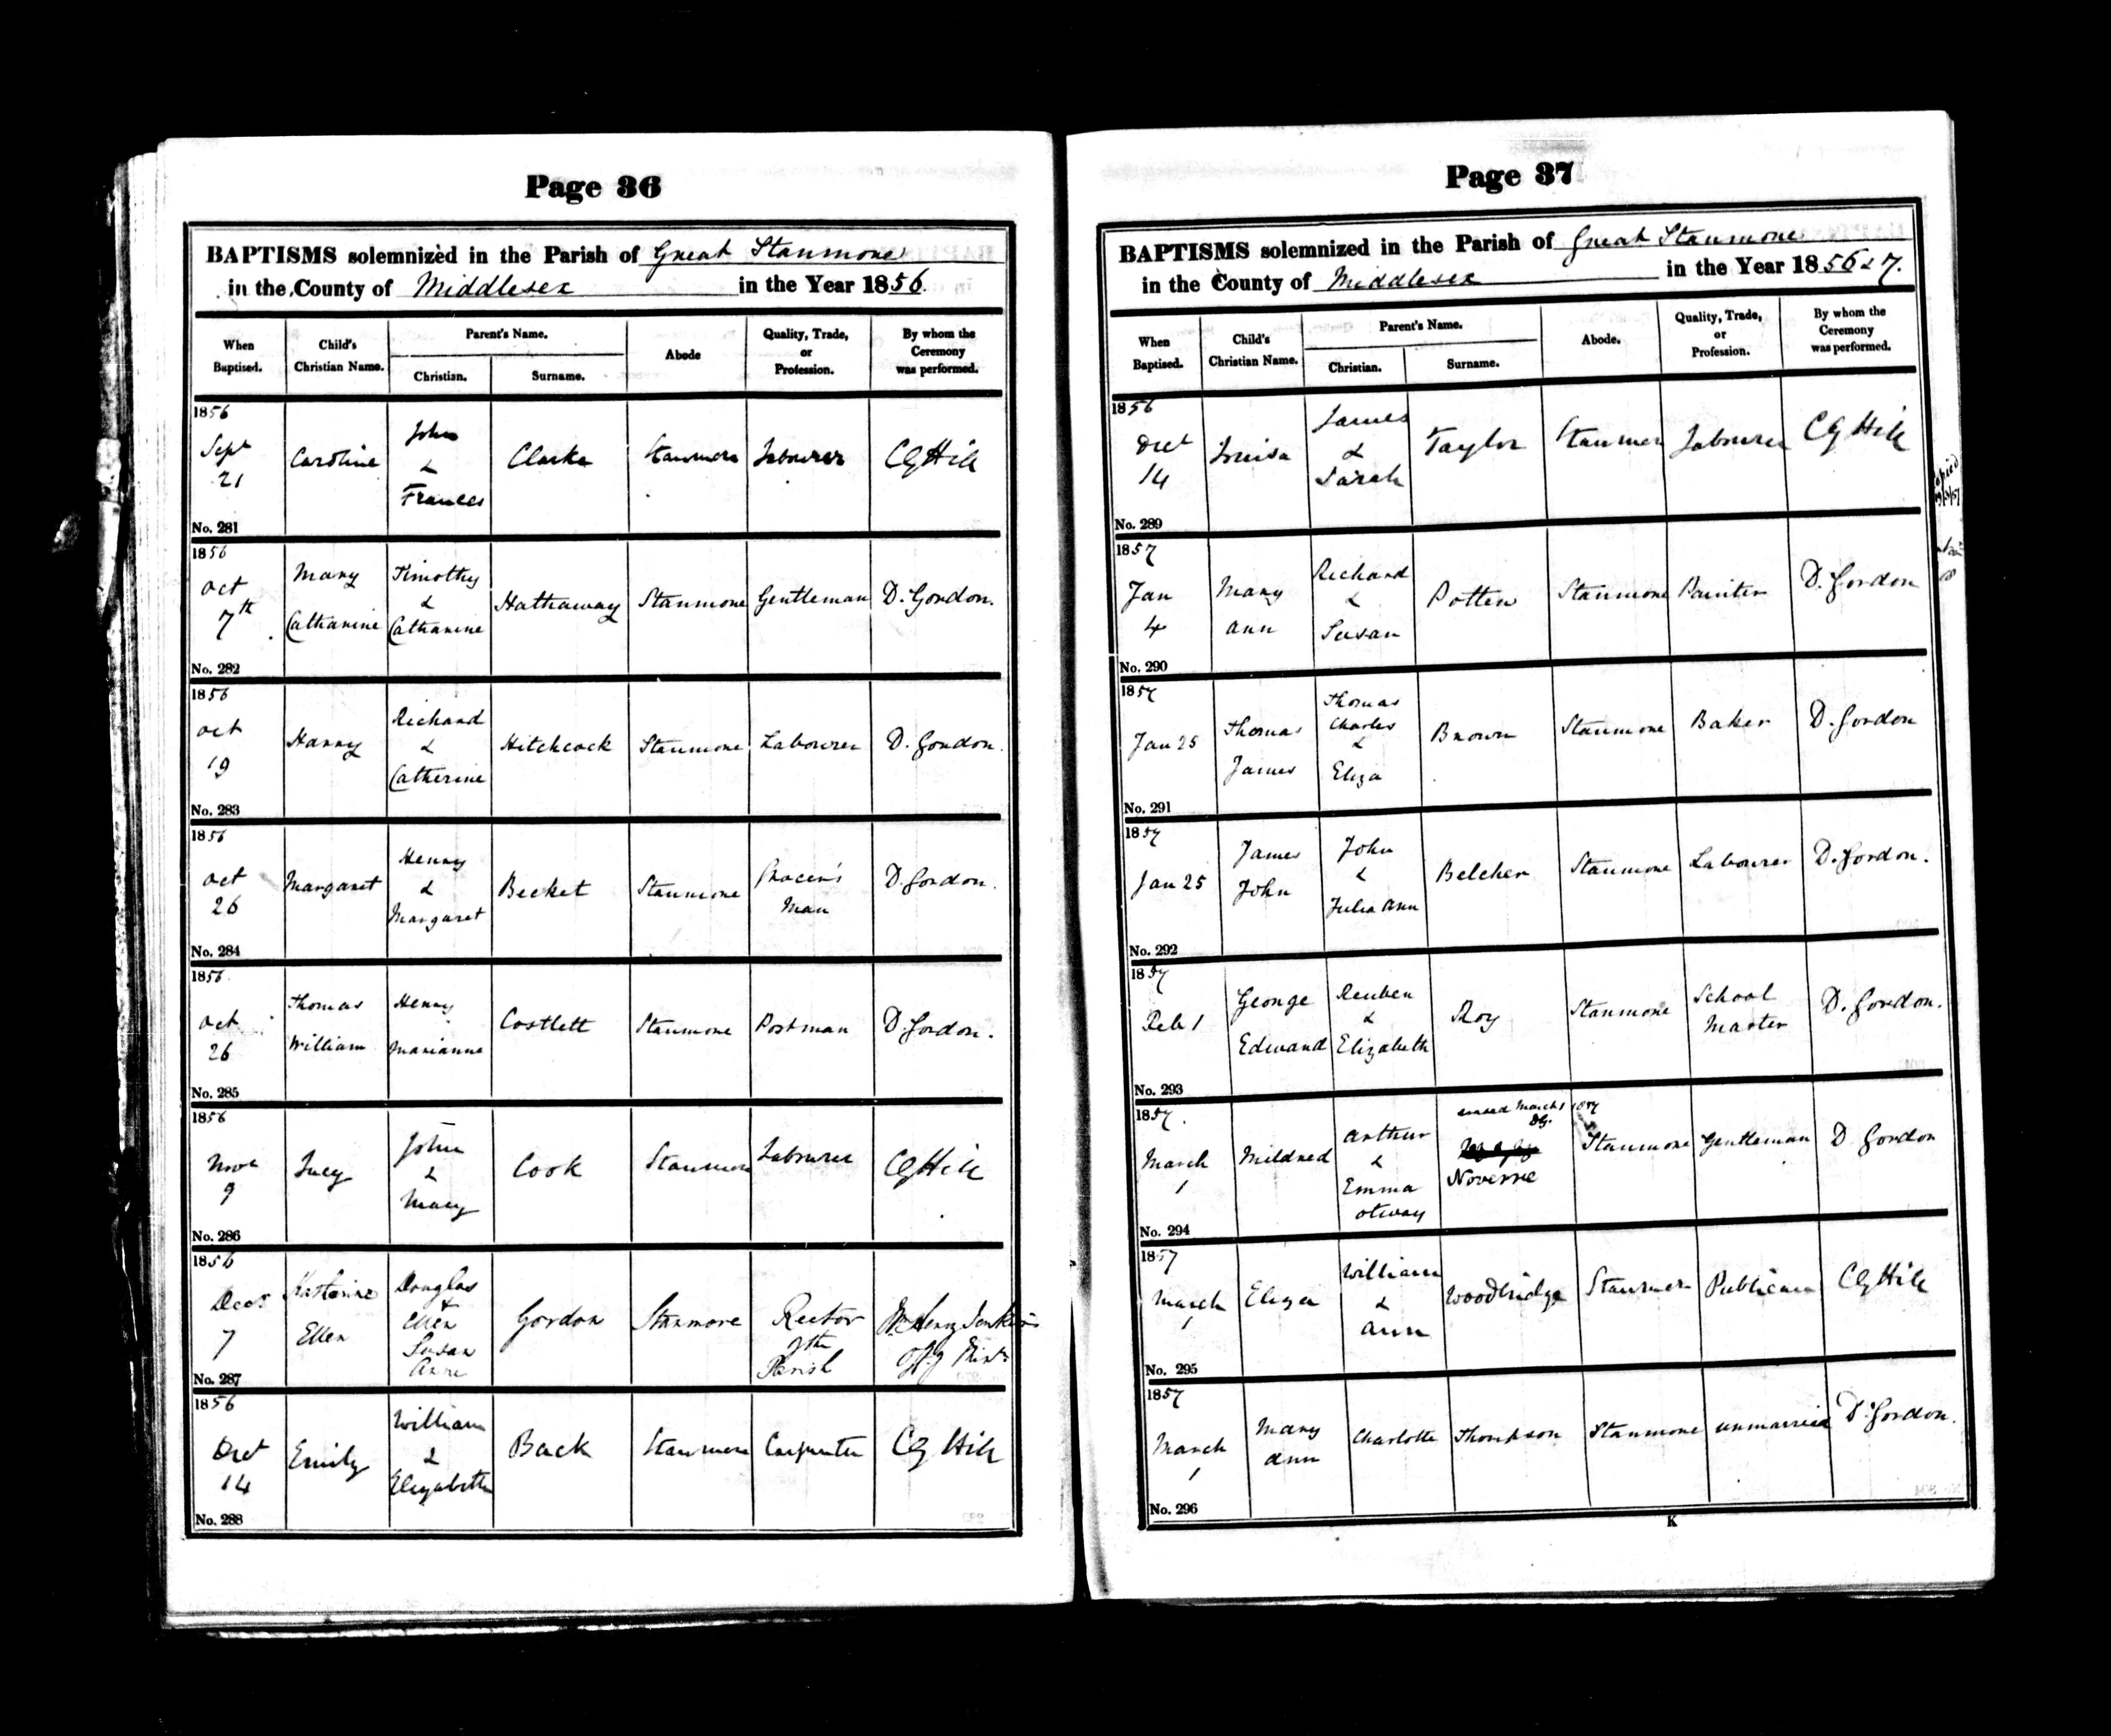 Page 36
BAPTISMS solemnized in the Parish of Great Stanmore
in the County of Middlesex in the Year 1856.
When Baptised. Child's Christian Name. Parent's Name. Christian. Surname. Abode Quality, Trade, or Profession. By whom the Ceremony was performed.
1856
Sept 21 Caroline John & Frances Clarke Stanmore Labourer CG Hill
No. 281
1856
Oct 7th Mary Catharine Timothy & Catharine Hathaway Stanmore Gentleman D. Gordon.
No. 282
1856
Oct 19 Harry Richard & Catherine Hitchcock Stanmore Labourer D. Gordon.
No. 283
1856
Oct 26 Margaret Henry & Margaret Becket Stanmore Man D. Gordon.
No. 284
1856
Oct 26 Thomas William Henry Marianne Costlett Stanmore Postman D. Gordon.
No. 285
1856
Novr 9 Lucy John & Mary Cook Stanmore Labourer CG Hill
No. 286
1856
Decr 7 Katherine Ellen Douglas & Ellen Susan Anne Gordon Stanmore Rector of the Parish Wm Henry Jenkins Offg Minr
No. 287
1856
Decr 14 Emily William & Elizabeth Back Stanmore Carpenter CG Hill
No. 288
Page 37
BAPTISMS solemnized in the Parish of Great Stanmore
in the County of Middlesex in the Year 1856 & 7.
When Baptised. Child's Christian Name. Parent's Name. Christian. Surname. Abode. Quality, Trade, or Profession. By whom the Ceremony was performed.
1856
Decr 14 Louisa James & Sarah Taylor Stanmore Labourer CG Hill
No. 289
1857
Jan 4 Mary Ann Richard & Susan Potten Stanmore Painter D. Gordon
No. 290
1857
Jan 25 Thomas James Thomas Charles & Eliza Brown Stanmore Baker D. Gordon
No. 291
1857
Jan 25 James John John & Julia Ann Belcher Stanmore Labourer D. Gordon.
No. 292
1857
Feb 1 George Edward Reuben & Elizabeth Roy Stanmore School Master D. Gordon.
No. 293
1857.
erased March 1 1857 DG.
March 1 Mildred Arthur & Emma Otway Noverre Stanmore Gentleman D Gordon
No. 294
1857
March 1 Eliza William & Ann Woodbridge Stanmore Publican CG Hill
No. 295
1857
March 1 Mary Ann Charlotte Thompson Stanmore unmarried D. Gordon.
No. 296
K